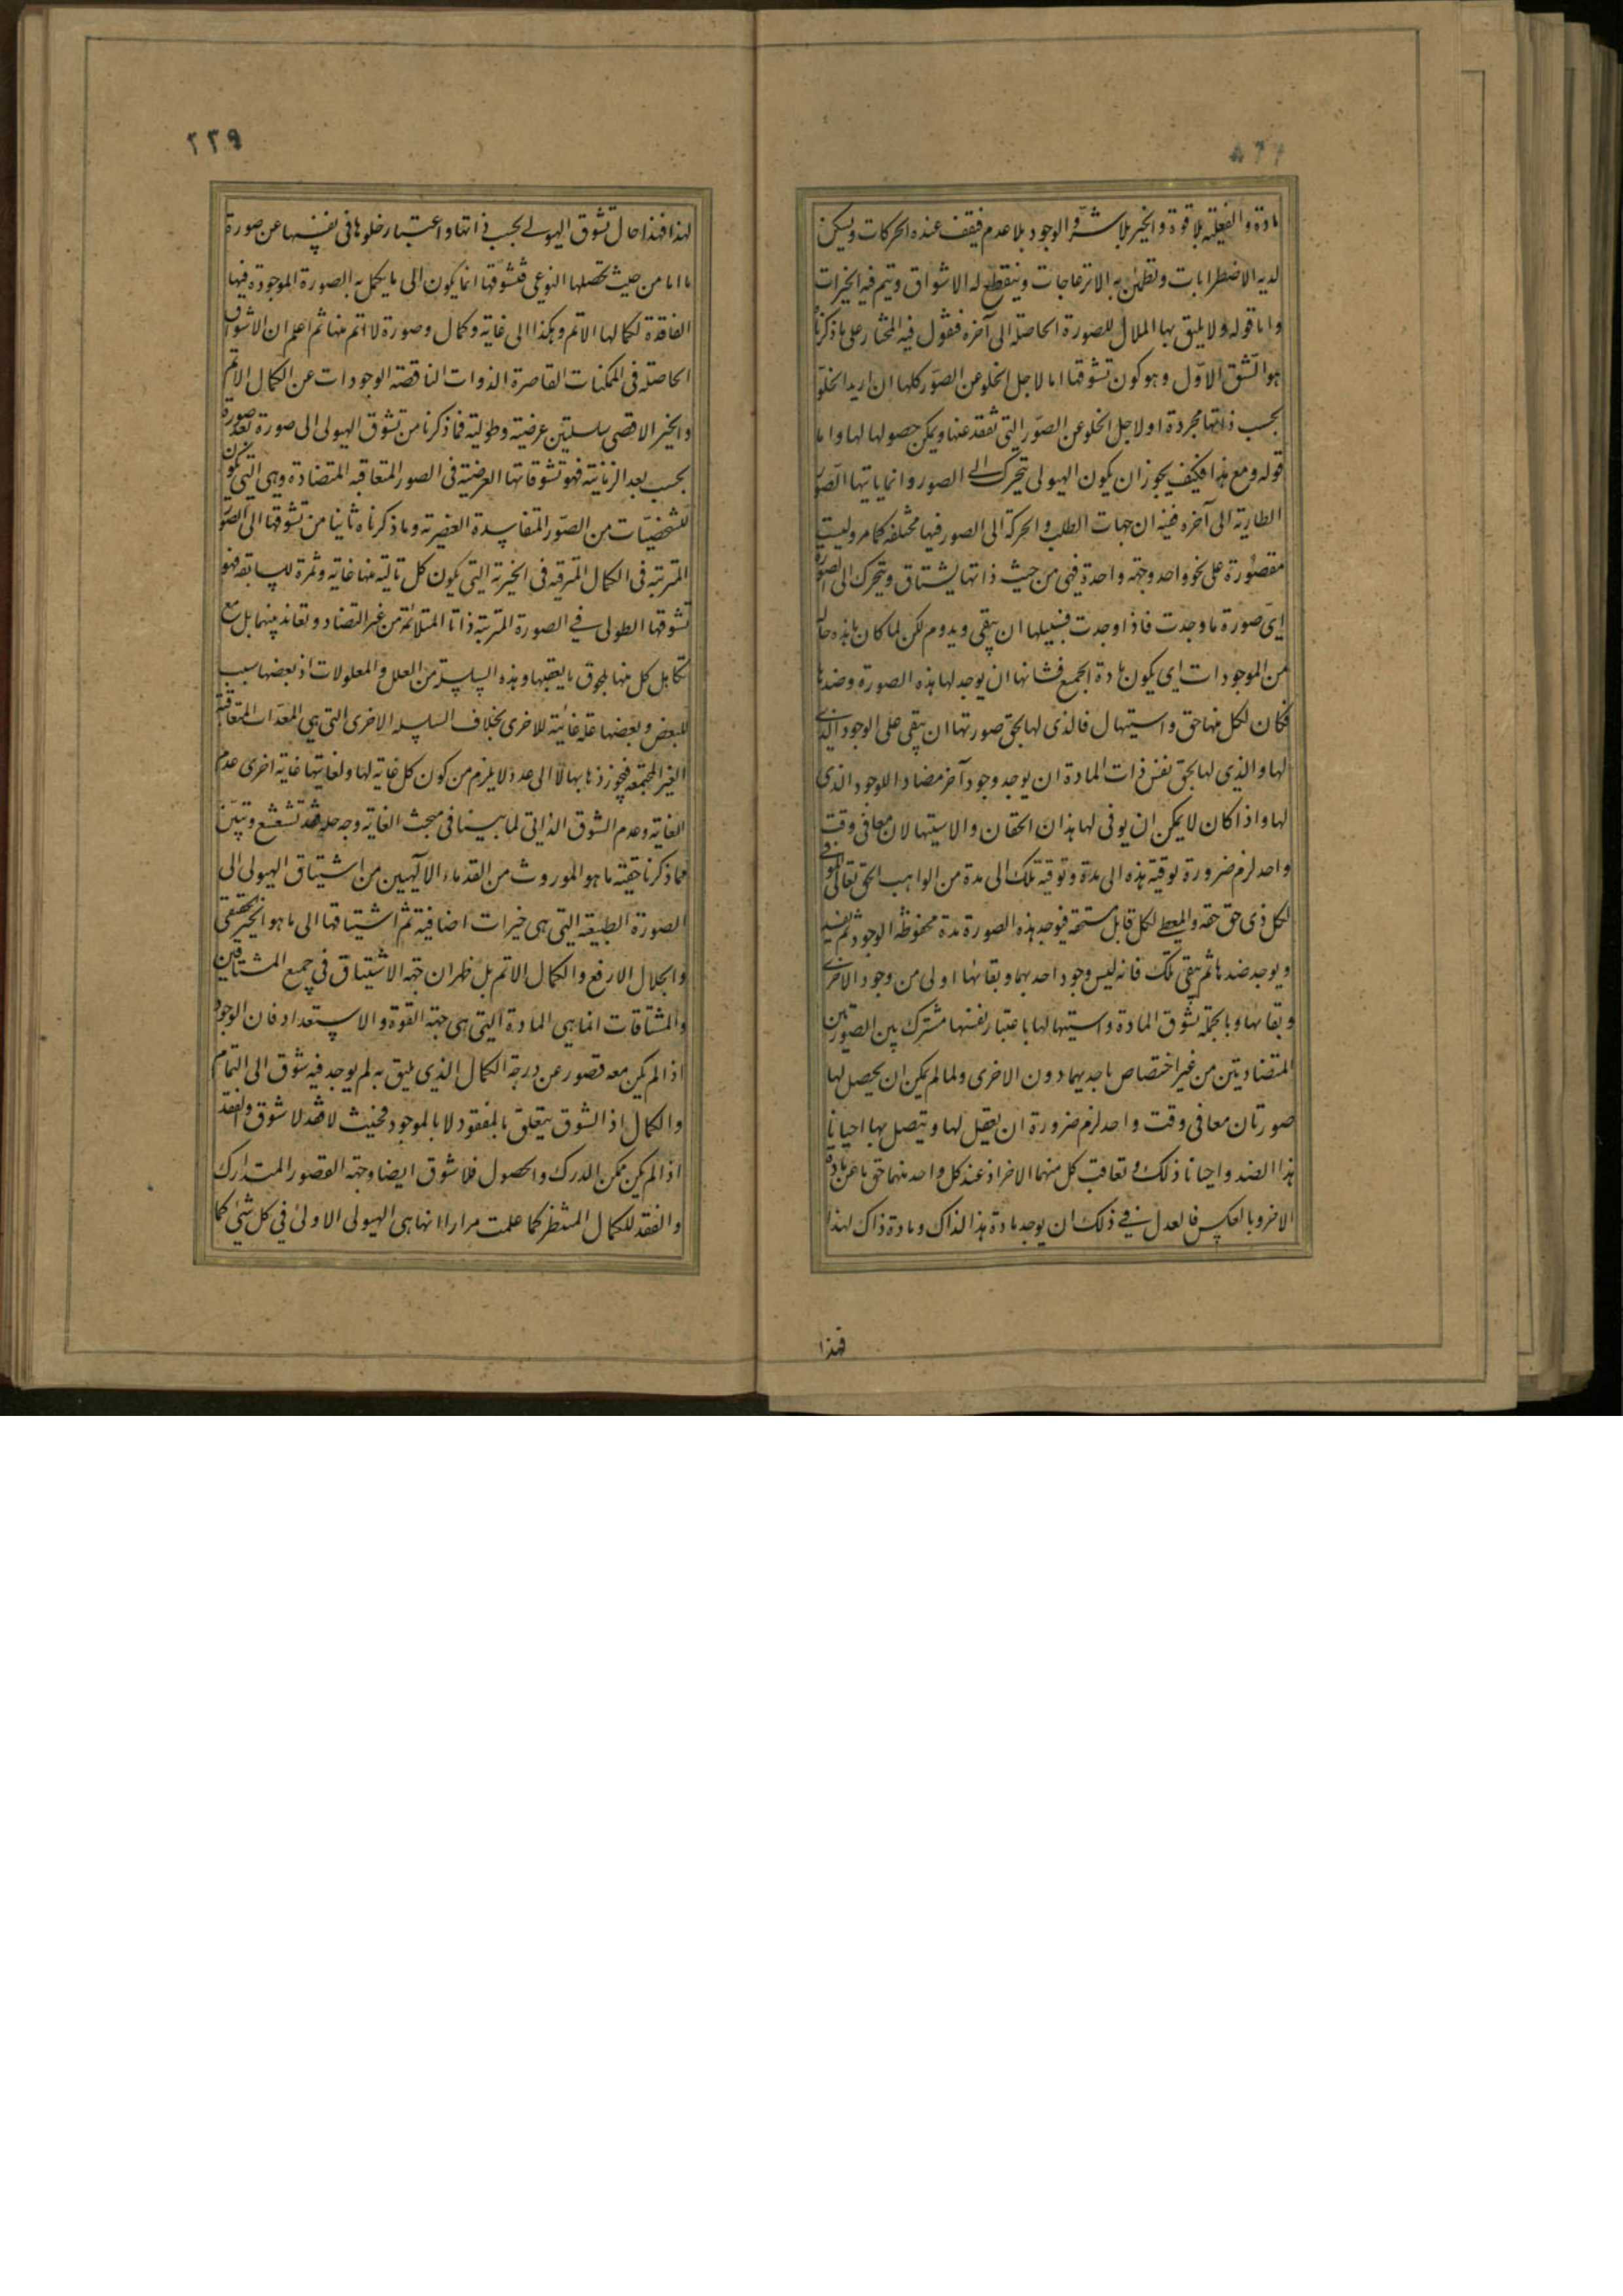 مادة والفعلية بلا قوة والخير بلا شر والوجود بلا عدم فيقف عنده الحركات ويسكن
لديه الاضطرابات وتطمئن به الانزعاجات وينقطع له الاشواق ويتم فيه الخيرات
واما قوله ولا يليق بها الملال للصورة الحاصلة الى آخره فنقول فيه المختار على ما ذكرنا
هو الشق الاول وهو كون تشوقها اما لاجل الخلو عن الصور كلها ان اريد الخلو
بحسب ذاتها مجردة او لاجل الخلو عن الصور التي تفقد عنها ويمكن حصولها لها واما
قوله ومع هذا فكيف يجوز ان يكون الهيولى تتحرك الى الصور وانما ياتيها الصور
الطارية الى آخره ففيه ان جهات الطلب والحركة الى الصور فيها مختلفة كما مر وليست
مقصورة على نحو واحد وجهة واحدة فهي من حيث ذاتها يشتاق ويتحرك الى الصورة
اي صورة ما وجدت فاذا وجدت فسبيلها ان يبقى ويدوم لكن لما كان ما هذه حاله
من الموجودات اي يكون مادة الجميع فشانها ان يوجد لها هذه الصورة وضدها
فكان لكل منها حق واستيهال فالذي لها بحق صورتها ان يبقى على الوجود الذي
لها والذي لها بحق نفس ذات المادة ان يوجد وجود آخر مضاد اللوجود الذي
لها واذا كان لا يمكن ان يوفى لها هذان الحقان والاستيهالان معا في وقت
واحد لزم ضرورة توفية هذه الى مدة وتوفية تلك الى مدة من الواهب الحق تعالى الموفي
لكل ذي حق حقه والمعطي لكل قابل مستحقه فيوجد هذه الصورة مدة محفوظة الوجود ثم تفسد
ويوجد ضدها ثم يبقى تلك فانه ليس وجود احديهما وبقائها اولى من وجود الاخرى
وبقائها وبالجملة شوق المادة واستيهالها باعتبار نفسها مشترك بين الصورتين
المتضادتين من غير اختصاص باحديهما دون الاخرى ولما لم يمكن ان يحصل لها
صورتان معا في وقت واحد لزم ضرورة ان يعقل لها ويتصل بها احيانا
هذا الضد واحيانا ذلك وتعاقب كل منهما الاخر اذ عند كل واحد منهما حق ما عن مادة
الاخر وبالعكس فالعدل في ذلك ان يوجد مادة هذا لذاك ومادة ذاك لهذا
فهذا
٢٢٩
لهذا فهذا حال تشوق الهيولى بحسب ذاتها واعتبار خلوها في نفسها عن صورة
ما اما من حيث تحصلها النوعي فشوقها انما يكون الى ما يكمل به الصورة الموجودة فيها
الفاقدة لكمالها الاتم وهكذا الى غاية وكمال وصورة لا اتم منها ثم اعلم ان الاشواق
الحاصلة في الممكنات القاصرة الذوات الناقصة الوجودات عن الكمال الاتم
والخير الاقصى سلسلتين عرضية وطولية فما ذكرنا من تشوق الهيولى الى صورة بعد صورة
بحسب بعد الزمانية فهو تشوقاتها العرضية في الصور المتعاقبة المتضادة وهي التي تكون
للشخصيات من الصور المتفاسدة العنصرية وما ذكرناه ثانيا من تشوقها الى الصور
المترتبة في الكمال المترقية في الخيرية التي يكون كل تالية منها غاية وثمرة للسابقة فهو
تشوقها الطولى في الصورة المترتبة ذاتا المتلائمة من غير التضاد وتعاند بينها بل مع
تكامل كل منها بلحوق ما يعقبها وهذه السلسلة من العلل والمعلولات اذ بعضها سبب
للبعض وبعضها علة غائية للاخرى بخلاف السلسله الاخرى التي هي المعدات المتعاقبة
الغير المجتمعة فيجوز ذهابها لا الى حد ولا يلزم من كون كل غاية لها ولغايتها غاية اخرى عدم
الغاية وعدم الشوق الذاتي لما بينا في مبحث الغاية وجه حله فقد تشعشع وتبين
مما ذكرنا حقية ما هو الموروث من القدماء الالهيين من اشتياق الهيولى الى
الصورة الطبيعة التي هي خيرات اضافية ثم اشتياقها الى ما هو الخير الحقيقي
والجلال الارفع والكمال الاتم بل ظهر ان جهة الاشتياق في جميع المشتاقين
والمشتاقات انما هي المادة التي هي جهة القوة والاستعداد فان الوجود
اذا لم يكن معه قصور عن درجة الكمال الذي يليق به لم يوجد فيه شوق الى التمام
والكمال اذ الشوق يتعلق بالمفقود لا بالموجود فحيث لا فقد لا شوق والفقد
اذا لم يكن ممكن الدرك والحصول فلا شوق ايضا وجهة القصور المتدارك
والفقد للكمال المنتظر كما علمت مرارا انها هي الهيولى الاولى في كل شيء كما